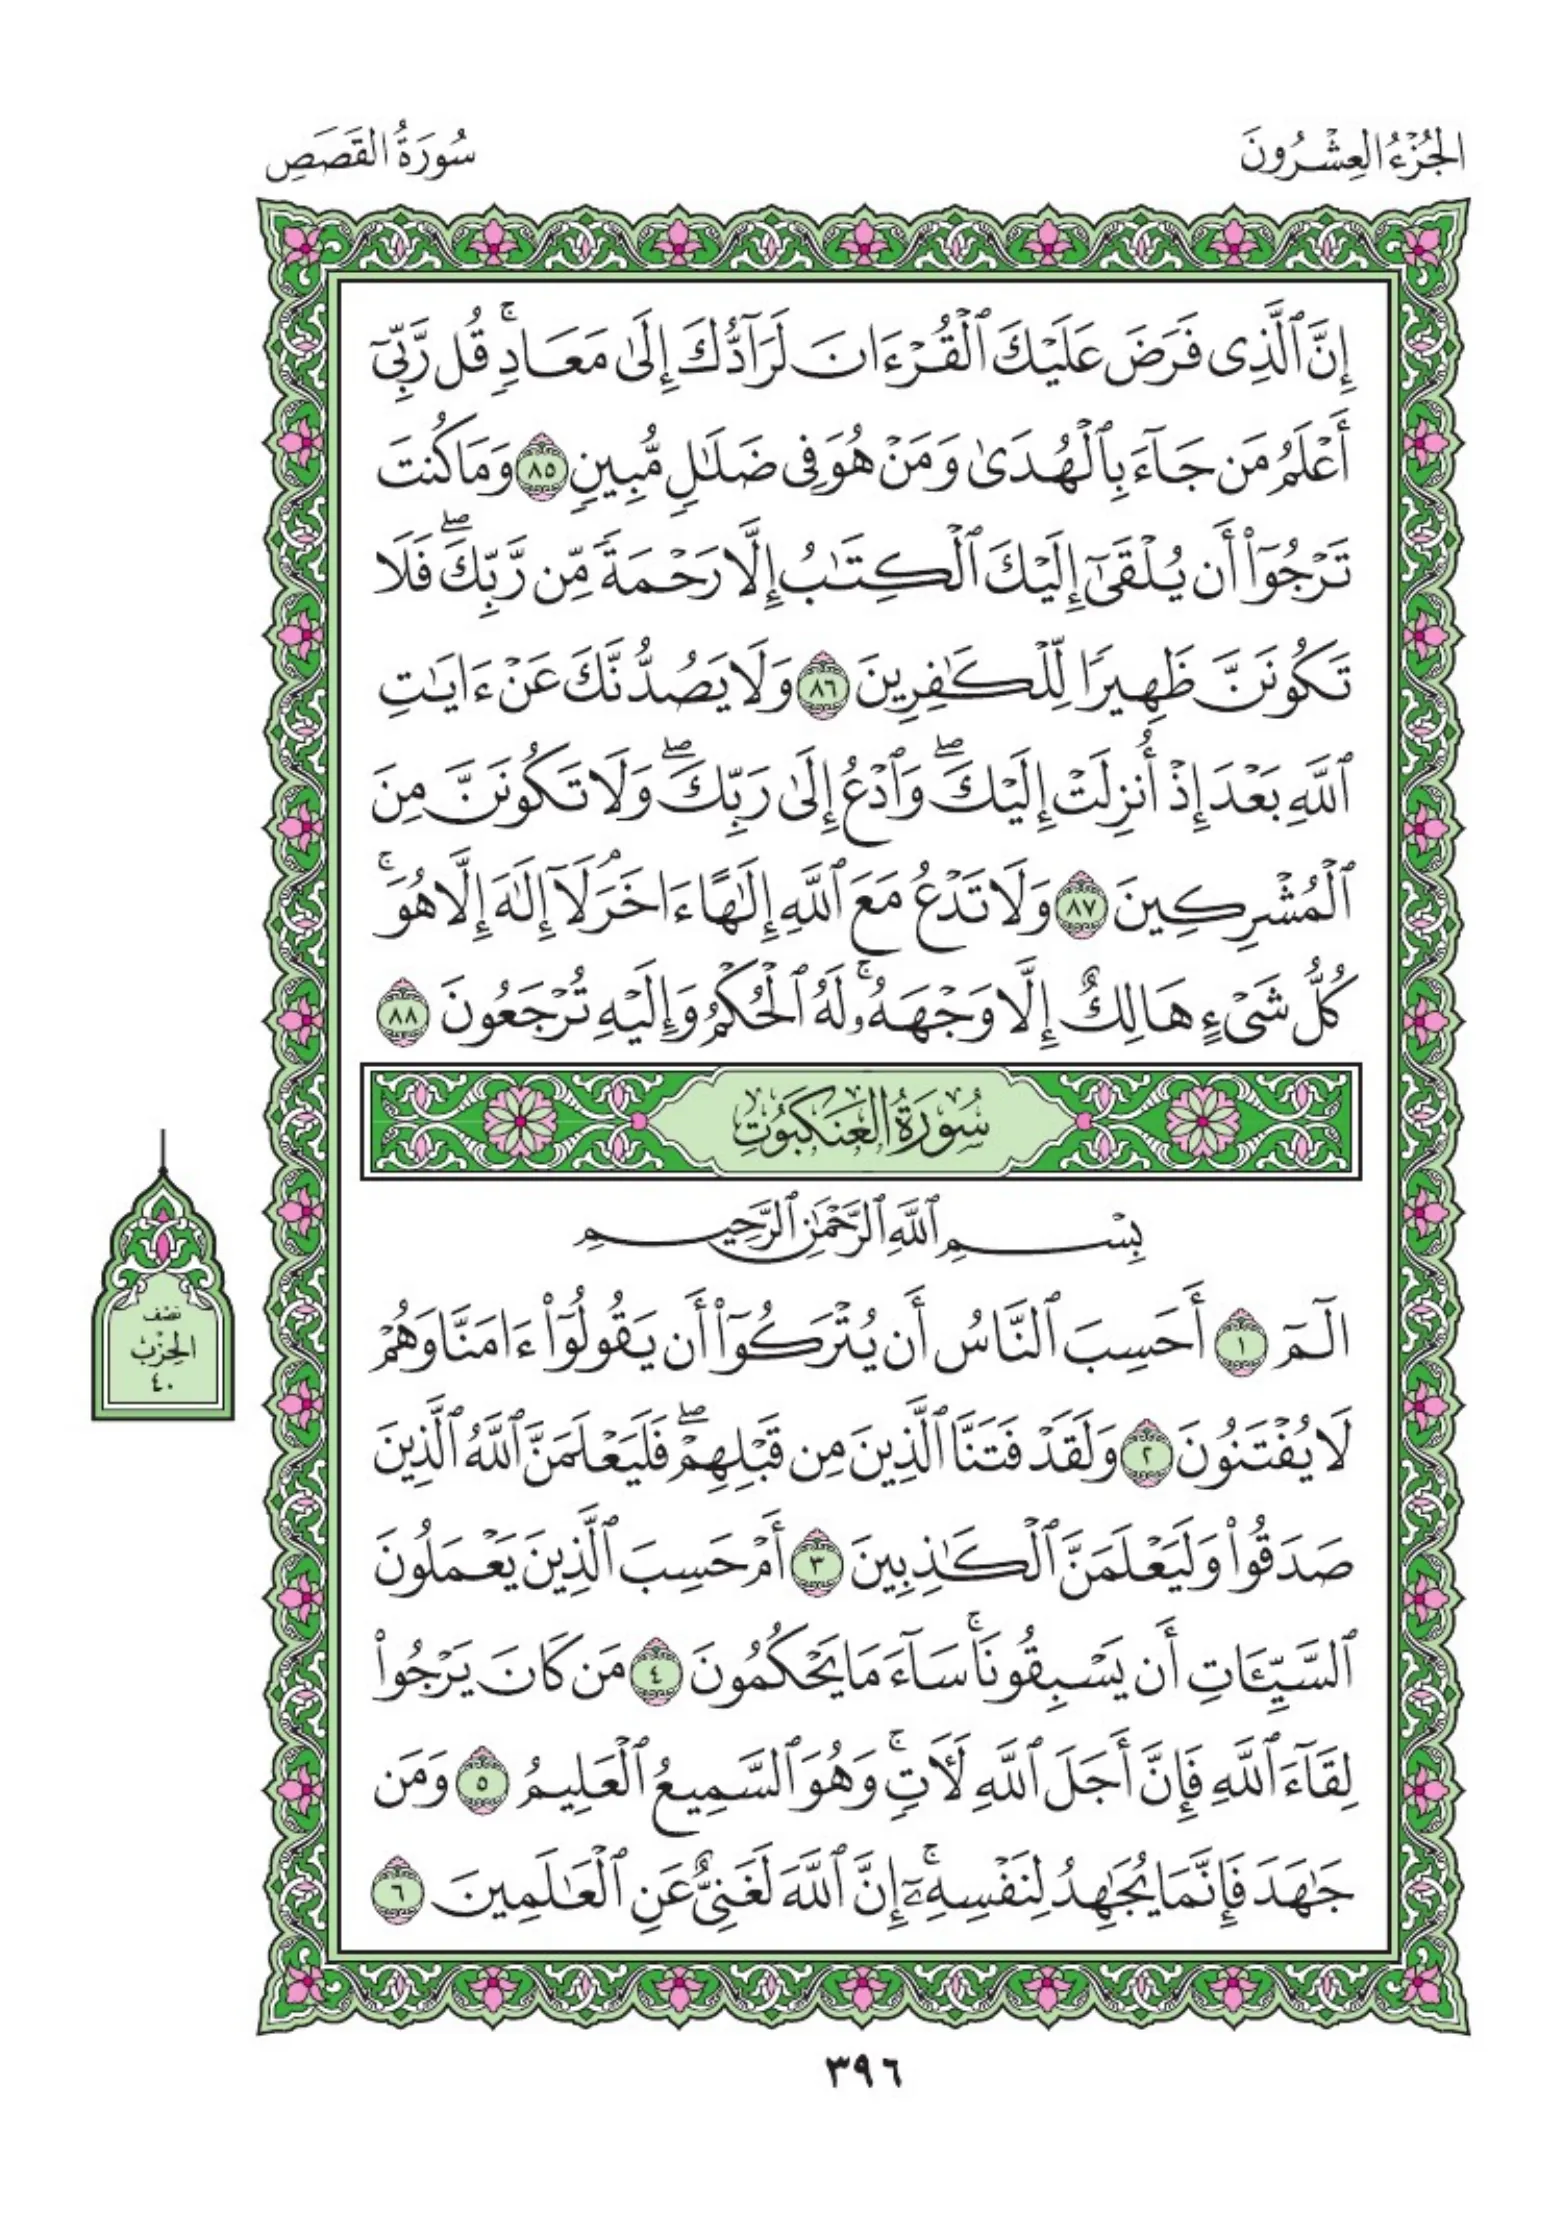 الجُزْءُ العِشْرُونَ
سُورَةُ القَصَصِ
إِنَّ ٱلَّذِى فَرَضَ عَلَيْكَ ٱلْقُرْءَانَ لَرَآدُّكَ إِلَىٰ مَعَادٍۚ قُل رَّبِّىٓ
أَعْلَمُ مَن جَآءَ بِٱلْهُدَىٰ وَمَنْ هُوَ فِى ضَلَٰلٍ مُّبِينٍ ٨٥ وَمَا كُنتَ
تَرْجُوٓا۟ أَن يُلْقَىٰٓ إِلَيْكَ ٱلْكِتَٰبُ إِلَّا رَحْمَةً مِّن رَّبِّكَۖ فَلَا
تَكُونَنَّ ظَهِيرًا لِّلْكَٰفِرِينَ ٨٦ وَلَا يَصُدُّنَّكَ عَنْ ءَايَٰتِ
ٱللَّهِ بَعْدَ إِذْ أُنزِلَتْ إِلَيْكَۖ وَٱدْعُ إِلَىٰ رَبِّكَۖ وَلَا تَكُونَنَّ مِنَ
ٱلْمُشْرِكِينَ ٨٧ وَلَا تَدْعُ مَعَ ٱللَّهِ إِلَٰهًا ءَاخَرَۘ لَآ إِلَٰهَ إِلَّا هُوَۚ
كُلُّ شَىْءٍ هَالِكٌ إِلَّا وَجْهَهُۥۚ لَهُ ٱلْحُكْمُ وَإِلَيْهِ تُرْجَعُونَ ٨٨
سُورَةُ العَنكَبُوتِ
بِسْمِ ٱللَّهِ ٱلرَّحْمَٰنِ ٱلرَّحِيمِ
الٓمٓ ١ أَحَسِبَ ٱلنَّاسُ أَن يُتْرَكُوٓا۟ أَن يَقُولُوٓا۟ ءَامَنَّا وَهُمْ
لَا يُفْتَنُونَ ٢ وَلَقَدْ فَتَنَّا ٱلَّذِينَ مِن قَبْلِهِمْۖ فَلَيَعْلَمَنَّ ٱللَّهُ ٱلَّذِينَ
صَدَقُوا۟ وَلَيَعْلَمَنَّ ٱلْكَٰذِبِينَ ٣ أَمْ حَسِبَ ٱلَّذِينَ يَعْمَلُونَ
ٱلسَّيِّـَٔاتِ أَن يَسْبِقُونَاۚ سَآءَ مَا يَحْكُمُونَ ٤ مَن كَانَ يَرْجُوا۟
لِقَآءَ ٱللَّهِ فَإِنَّ أَجَلَ ٱللَّهِ لَـَٔاتٍۚ وَهُوَ ٱلسَّمِيعُ ٱلْعَلِيمُ ٥ وَمَن
جَٰهَدَ فَإِنَّمَا يُجَٰهِدُ لِنَفْسِهِۦٓۚ إِنَّ ٱللَّهَ لَغَنِىٌّ عَنِ ٱلْعَٰلَمِينَ ٦
نِصْف
الحِزْب
٤٠
٣٩٦